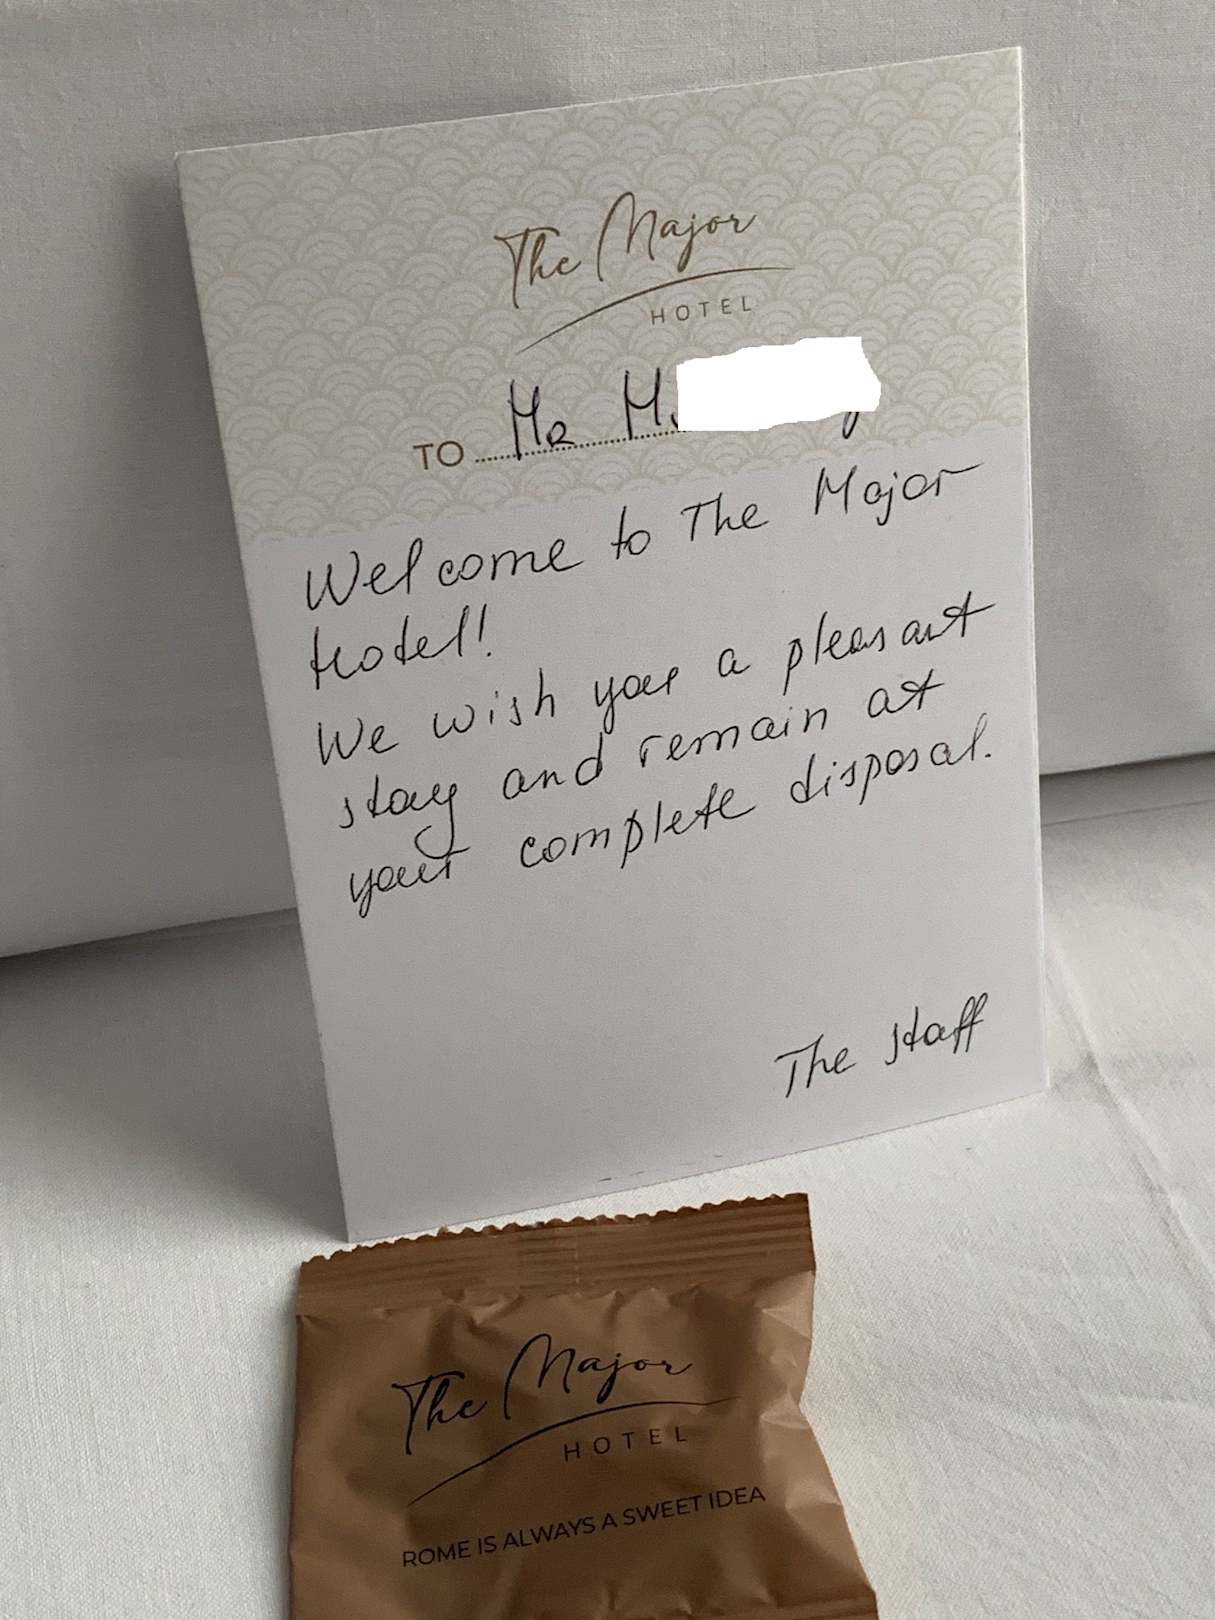 The Major
HOTEL
TO Mr
Welcome to The Major
Hotel!
We wish you a pleasant
stay and remain at
your complete disposal.
The staff
The Major
HOTEL
ROME IS ALWAYS A SWEET IDEA